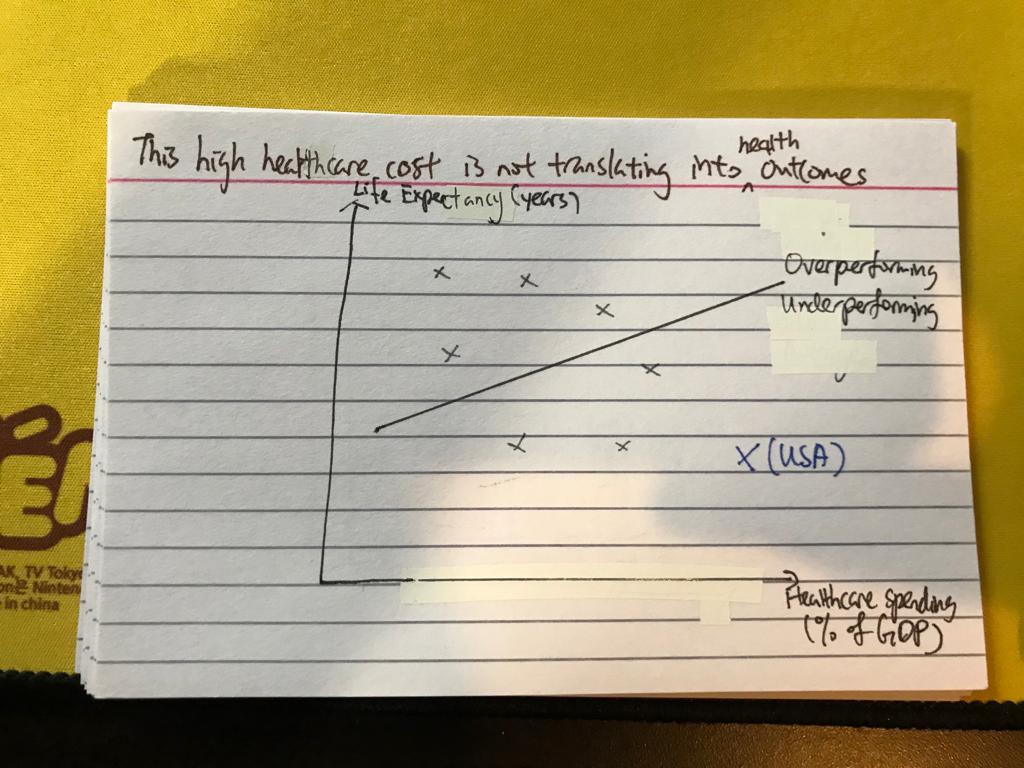 health
This high healthcare cost is not translating into ^ outcomes
Life Expectancy (years)
Overperforming
Underperforming
X (USA)
Healthcare spending
(% of GDP)
AK, TV Toky
Ninten
in china